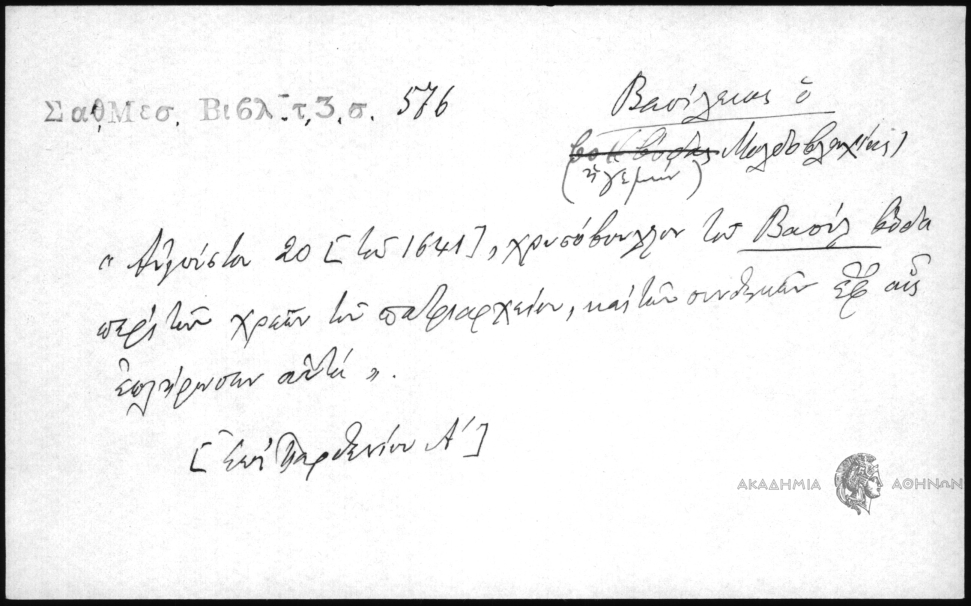 Σαθ, Μεσ. Βιβλ. τ, 3, σ. 576
Βασίλειος ὁ
Μολδοβλαχίας)
(ἡγεμών)
"Αὐγούστου 20 [τοῦ 1641], χρυσόβουλλον τοῦ Βασίλ βόδα
περὶ τῶν χρεῶν τοῦ πατριαρχείου, καὶ τῶν συνθηκῶν ἐφ' αἷς
ἐπλήρωσαν αὐτά".
[Ἐπὶ Παρθενίου Α΄]
ΑΚΑΔΗΜΙΑ ΑΘΗΝΩΝ